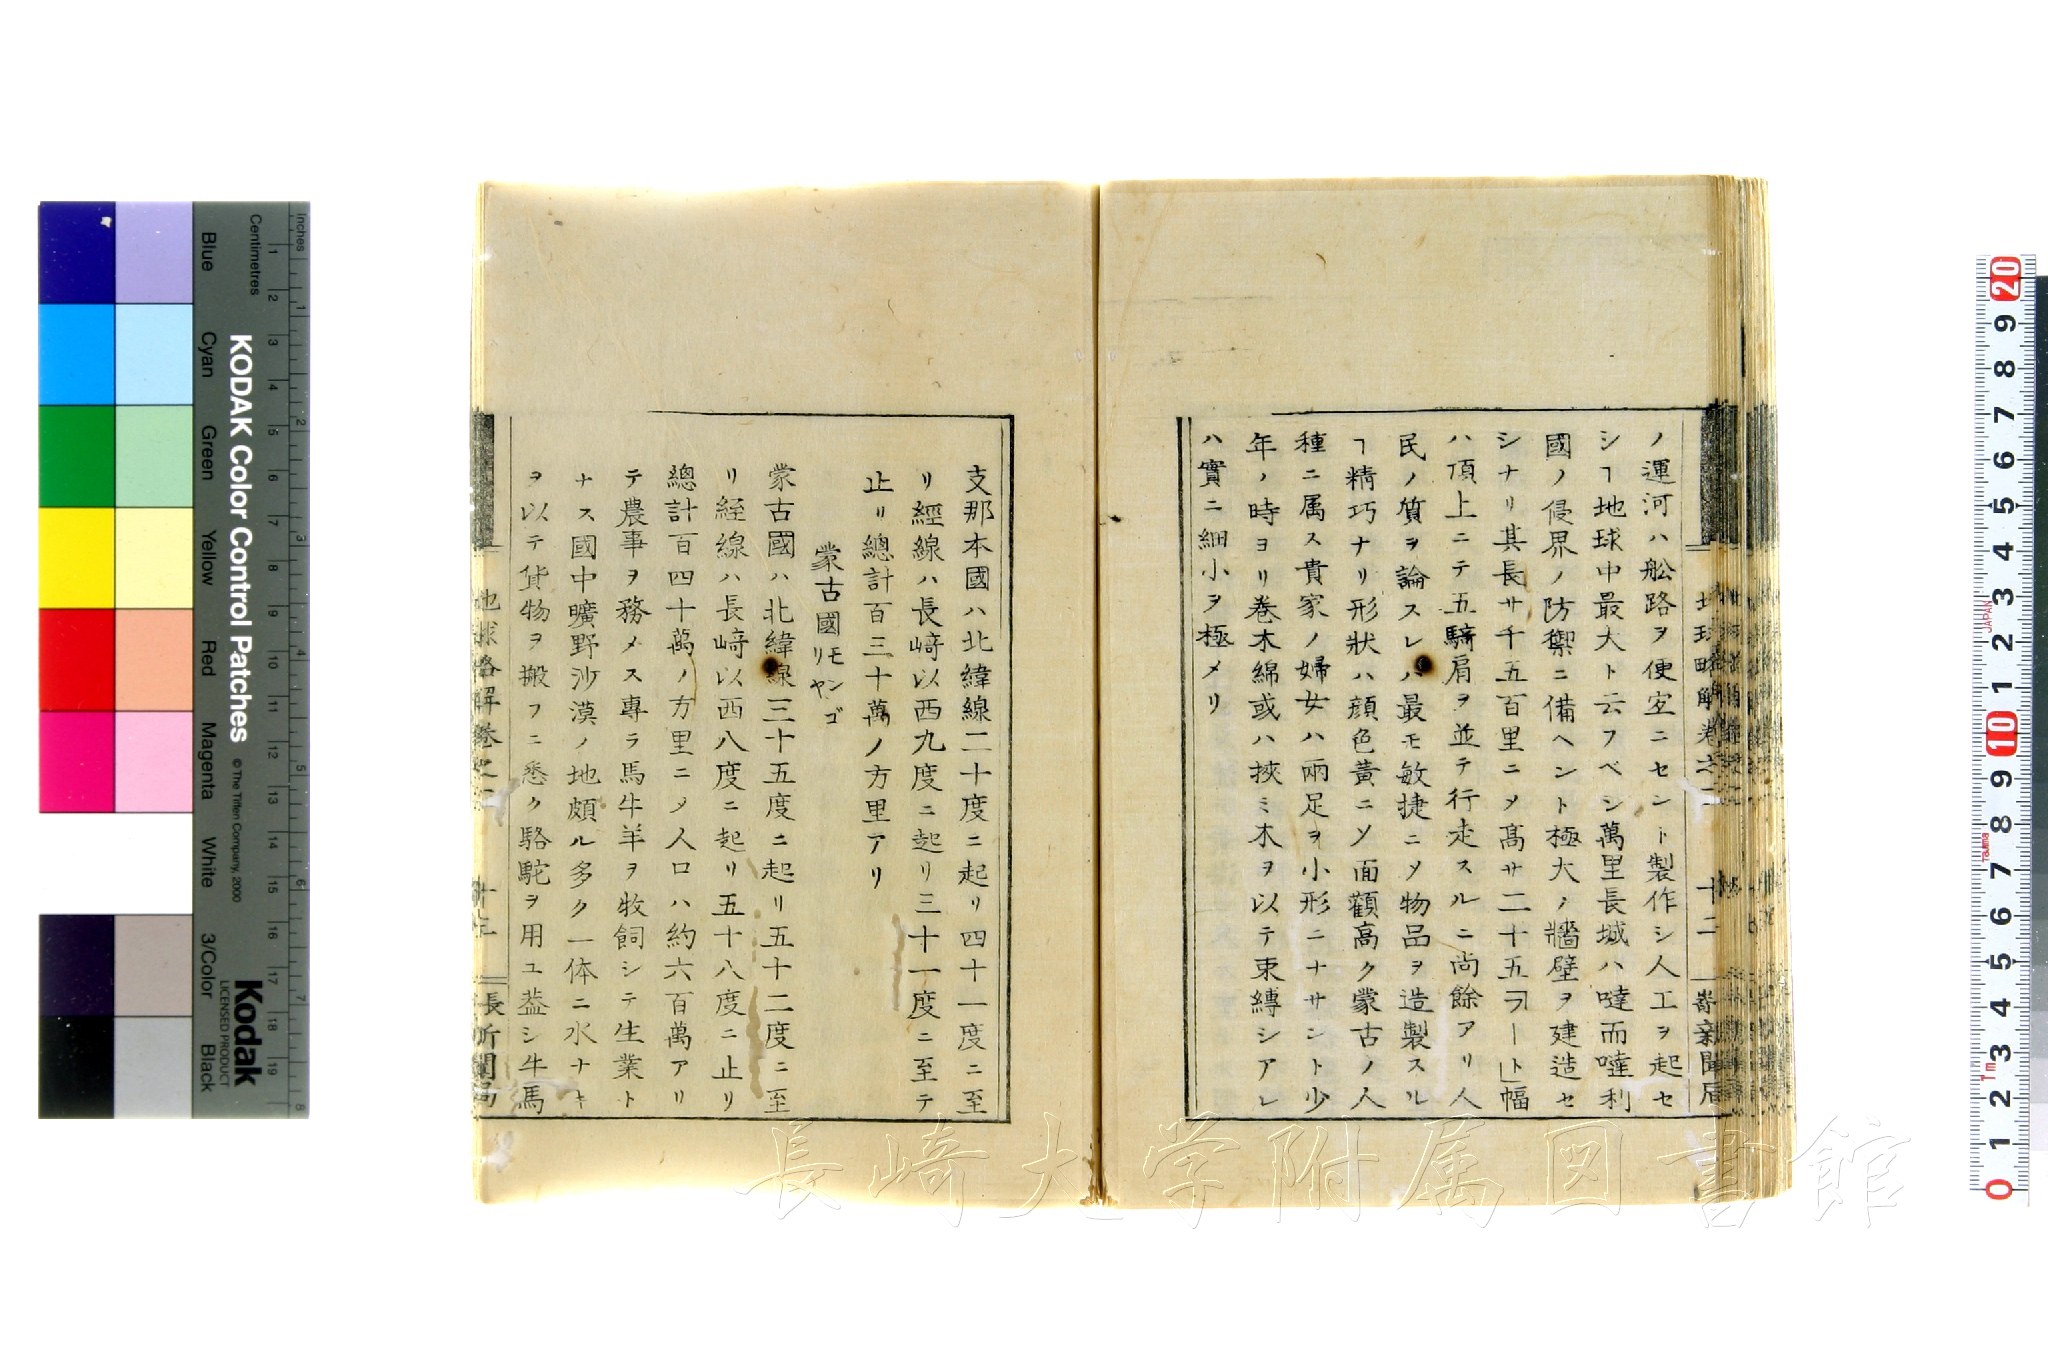 ノ運河ハ舩路ヲ便宐ニセント製作シ人工ヲ起セ
シヿ地球中最大ト云フベシ萬里長城ハ噠而噠利
國ノ侵界ノ防禦ニ備ヘント極大ノ牆壁ヲ建造セ
シナリ其長サ千五百里ニ〆髙サ二十五「フート」幅
ハ頂上ニテ五騎肩ヲ並テ行走スルニ尚餘アリ人
民ノ質ヲ論スレハ最モ敏捷ニ〆物品ヲ造製スル
ヿ精巧ナリ形狀ハ顔色黃ニ〆面顴高ク蒙古ノ人
種ニ属ス貴家ノ婦女ハ兩足ヲ小形ニナサント少
年ノ時ヨリ巻木綿或ハ挾ミ木ヲ以テ束縛シアレ
ハ實ニ細小ヲ極メリ
地球略解巻之二 十二 嵜新聞局
支那本國ハ北緯線二十度ニ起リ四十一度ニ至
リ經線ハ長﨑以西九度ニ起リ三十一度ニ至テ
止リ總計百三十萬ノ方里アリ
蒙古國モンゴリヤ
蒙古國ハ北緯線三十五度ニ起リ五十二度ニ至
リ経線ハ長﨑以西八度ニ起リ五十八度ニ止リ
總計百四十萬ノ方里ニ〆人口ハ約六百萬アリ
テ農事ヲ務メス專ラ馬牛羊ヲ牧飼シテ生業ト
ナス國中曠野沙漠ノ地頗ル多ク一体ニ水ナキ
ヲ以テ貨物ヲ搬フニ悉ク駱駝ヲ用ユ葢シ牛馬
地球略解巻之二 十三 長
長崎大学附属図書館
KODAK Color Control Patches
© The Tiffen Company, 2000
Kodak
LICENSED PRODUCT
Inches
Centimetres
Blue
Cyan
Green
Yellow
Red
Magenta
White
3/Color
Black
1 2 3 4 5 6 7 8 9 10 11 12 13 14 15 16 17 18 19
1 2 3 4 5 6 7 8
20 9 8 7 6 5 4 3 2 1 10 9 8 7 6 5 4 3 2 1 0
JAPAN
Tajima